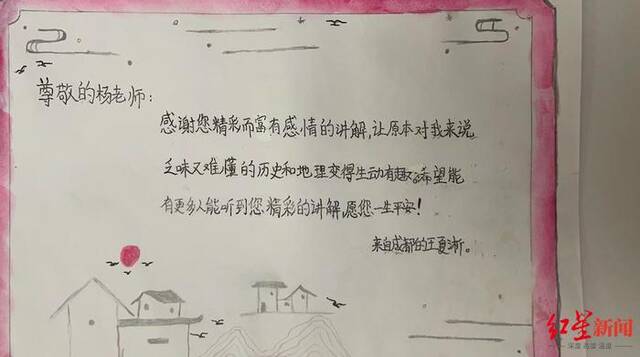 尊敬的杨老师：
感谢您精彩而富有感情的讲解,让原本对我来说
乏味又难懂的历史和地理变得生动有趣。希望能
有更多人能听到您精彩的讲解,愿您一生平安!
来自成都的王夏淅。
红星新闻
深度 态度 温度